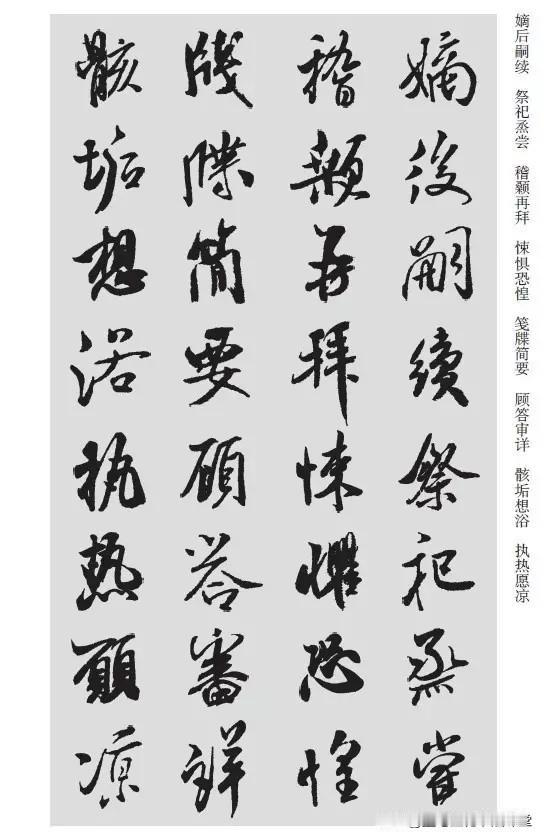 嫡后嗣续 祭祀烝尝 稽颡再拜 悚惧恐惶 笺牒简要 顾答审详 骸垢想浴 执热愿凉
嫡後嗣續祭祀烝嘗
稽顙再拜悚懼恐惶
牋牒簡要顧答審詳
骸垢想浴執熱願涼